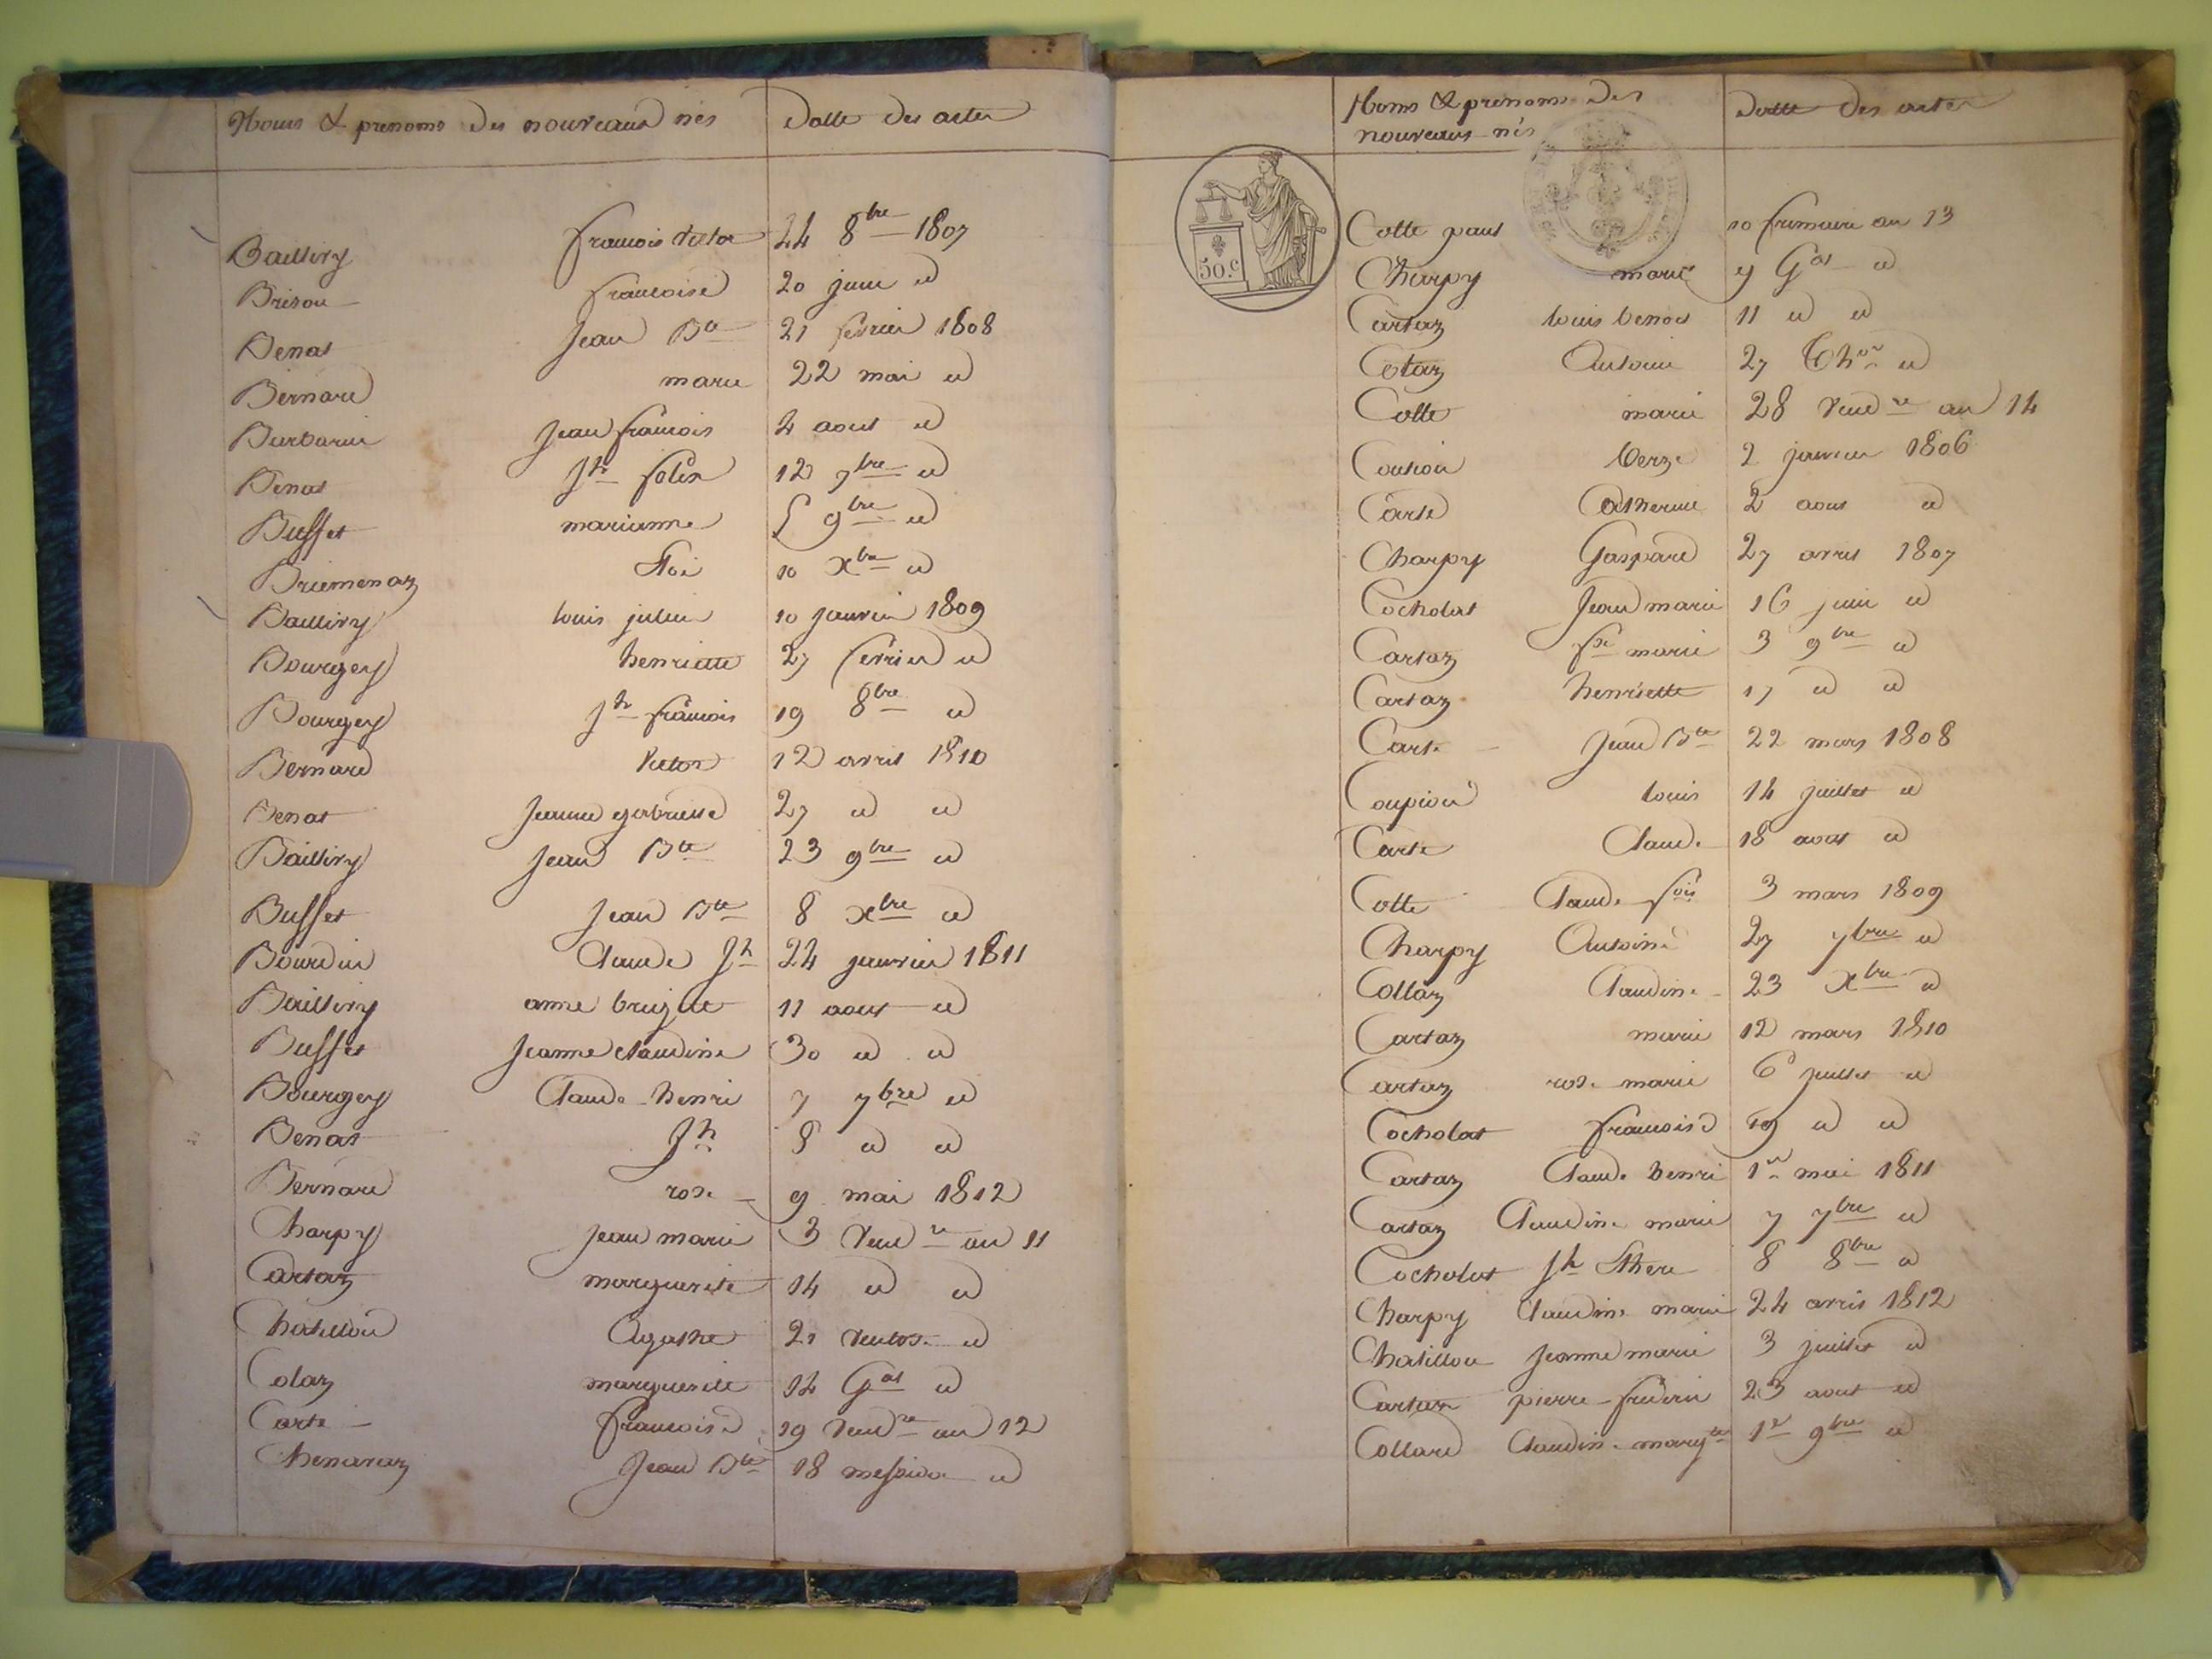 Noms & prenoms des nouveaux nés Datte des actes
Bailliry francois victor 24 8bre 1807
Brison francoise 20 juin id
Benat Jean Bte 21 fevrier 1808
Bernard marie 22 mai id
Burbarin Jean francois 2 aout id
Benat Jh felix 12 7bre id
Buffet marianne 5 9bre id
Eloi 10 Xbre id
Bailliry louis julien 10 janvier 1809
Bourgey henriette 27 fevrier id
Bourgey Jh francois 19 8bre id
Bernard Victor 12 avril 1810
Benat Jeanne gabrielle 27 id id
Bailliry Jean Bte 23 9bre id
Buffet Jean Bte 8 xbre id
Bourdin Claude Jh 24 janvier 1811
Bailliry anne brigite 11 aout id
Buffet Jeanne claudine 30 id id
Bourgey Claude henri 7 7bre id
Benat Jh 8 id id
Bernard rose 9 mai 1812
Charpy Jean marie 3 Vendre an 11
Cartaz marguerite 14 id id
Chatillon Agathe 21 Ventose id
Colaz marguerite 14 Gal id
Carte francoise 19 Vendre an 12
Chenavaz Jean Bte 18 messidor id
Noms & prenoms des
nouveaux nés Datte des actes
50.c
Cotte paul 10 frimaire an 13
Charpy marie 9 Gal id
Cartaz louis benoit 11 id id
Cotaz Antoine 27 Thor id
Cotte marie 28 Vendre an 14
2 janvier 1806
Carte Catherine 2 aout id
Charpy Gaspard 27 avril 1807
Cocholat Jean marie 16 juin id
Cartaz fse marie 3 9bre id
Cartaz henriette 17 id id
Carte Jean Bte 22 mars 1808
Coupion louis 14 juillet id
Carte Claude 18 aout id
Cotte Claude fois 3 mars 1809
Charpy Antoine 27 7bre id
Collaz Claudine 23 Xbre id
Cartaz marie 12 mars 1810
Cartaz rose marie 6 juillet id
Cocholat francoise 19 id id
Cartaz Claude henri 1er mai 1811
Cartaz Claudine marie 7 7bre id
Cocholat Jh 8 8bre id
Charpy Claudine marie 24 avril 1812
Chatillon Jeanne marie 3 juillet id
Cartaz pierre frederic 23 aout id
Collard Claudine margte 1er 9bre id